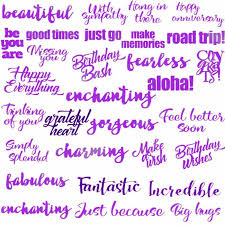 beautiful
With sympathy
Hang in there
Happy anniversary
be you are
good times
just go
make memories
road trip!
Missing you
Birthday Bash
fearless
Happy Everything
aloha!
enchanting
Thinking of you
grateful heart
gorgeous
Feel better soon
Simply Splendid
charming
Make wish
Birthday wishes
fabulous
Fantastic
Incredible
enchanting
Just because
Big hugs